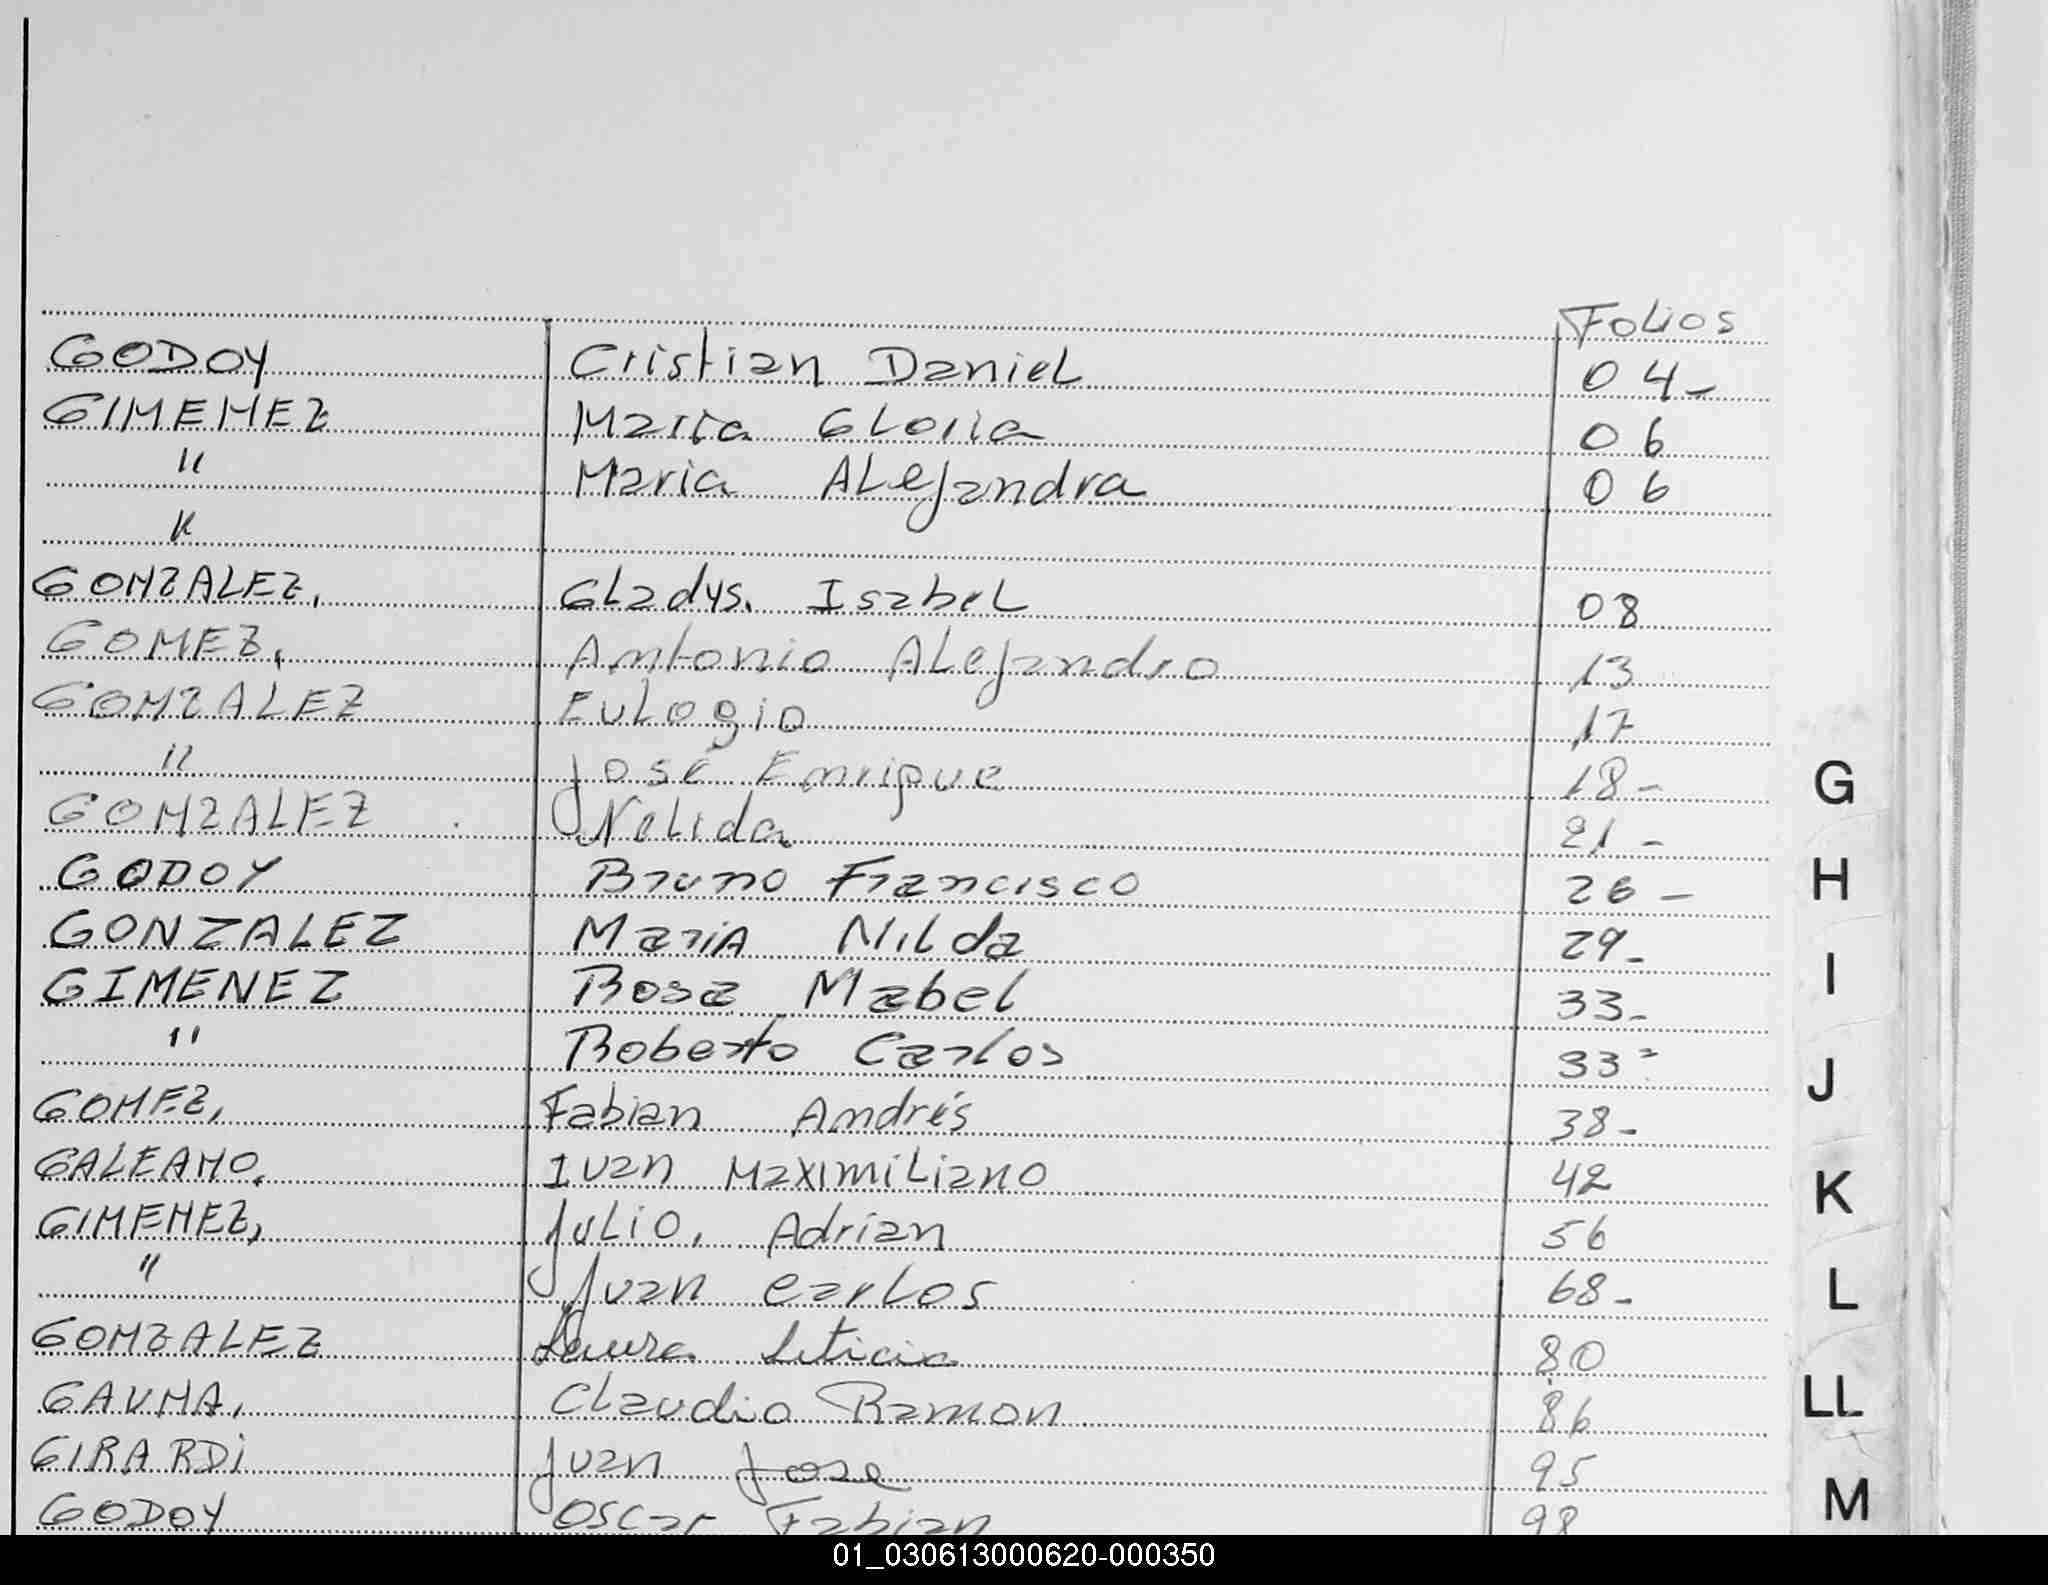 Folios
GODOY Cristian Daniel 04-
GIMENEZ Maria Gloria 06
" Maria Alejandra 06
"
GONZALEZ, Gladys. Isabel 08
GOMEZ, Antonio Alejandro 13
GONZALEZ Eulogio 17
" José Enrique 18-
GONZALEZ Nelida 21-
GODOY Bruno Francisco 26-
GONZALEZ Maria Nilda 29-
GIMENEZ Rosa Mabel 33-
" Roberto Carlos 33-
GOMEZ, Fabian Andrés 38-
GALEANO, Ivan Maximiliano 42
GIMENEZ, Julio, Adrian 56
" Juan Carlos 68-
GONZALEZ Laura Leticia 80
GAUNA, Claudio Ramon 86
GIRARDi Juan Jose 95
GODOY Oscar Fabian 98
G
H
I
J
K
L
LL
M
01_030613000620-000350